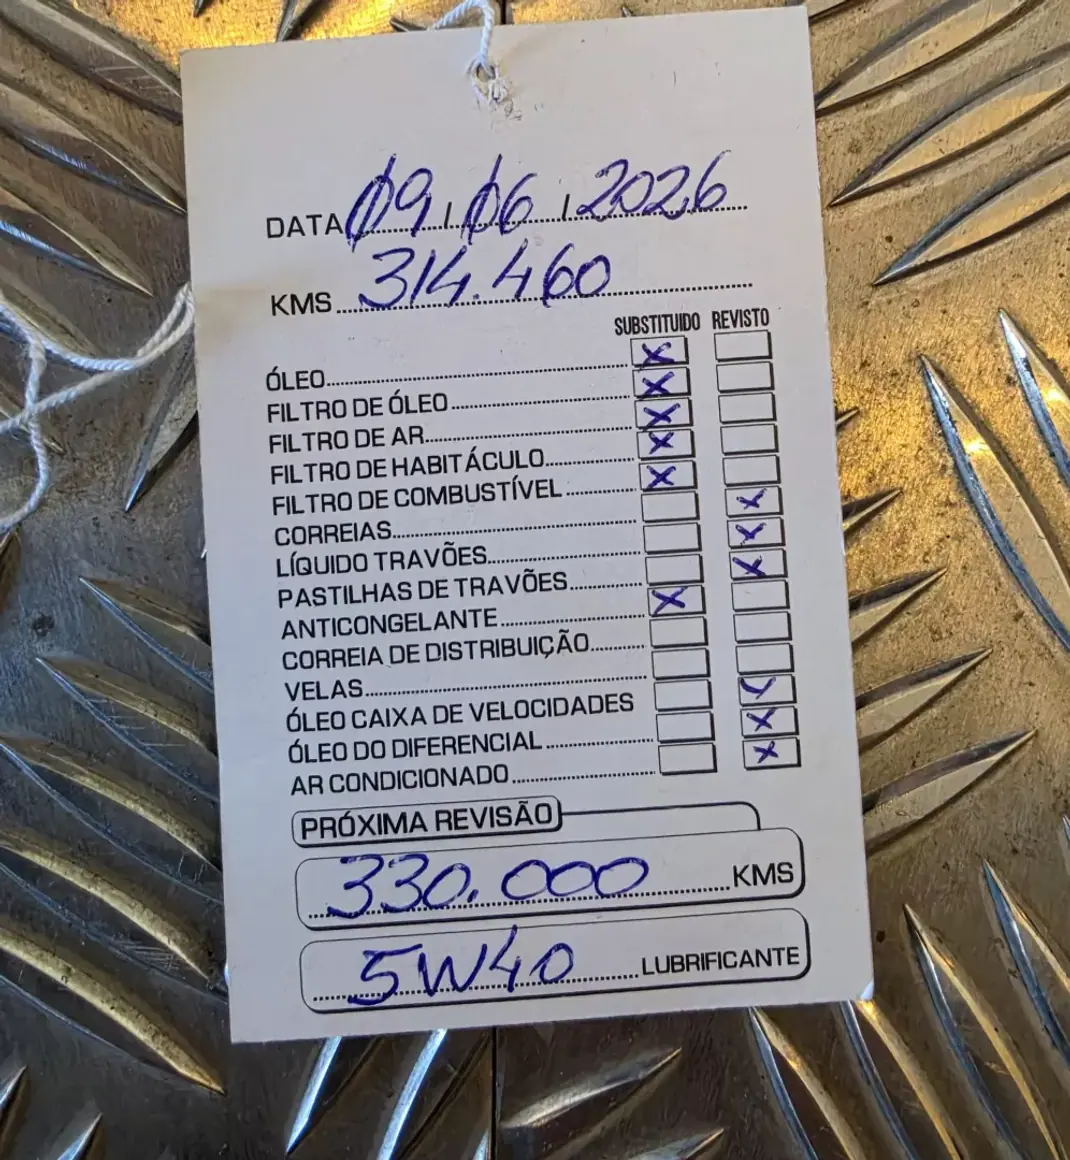 DATA 09 / 06 / 2026
KMS 314.460
SUBSTITUIDO REVISTO
ÓLEO X
FILTRO DE ÓLEO X
FILTRO DE AR X
FILTRO DE HABITÁCULO X
FILTRO DE COMBUSTÍVEL X
CORREIAS X
LÍQUIDO TRAVÕES X
PASTILHAS DE TRAVÕES X
ANTICONGELANTE X
CORREIA DE DISTRIBUIÇÃO
VELAS
ÓLEO CAIXA DE VELOCIDADES X
ÓLEO DO DIFERENCIAL X
AR CONDICIONADO X
PRÓXIMA REVISÃO
330.000 KMS
5W40 LUBRIFICANTE